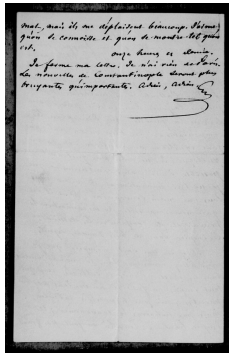 mal, mais ils me déplaisent beaucoup. J'aime
qu'on se connaisse et qu'on se montre tel qu'on
est.
onze heures et demie.
Je ferme ma lettre. Je n'ai rien de Paris.
Les nouvelles de Constantinople seront plus
bruyantes qu'importantes. Adieu, adieu